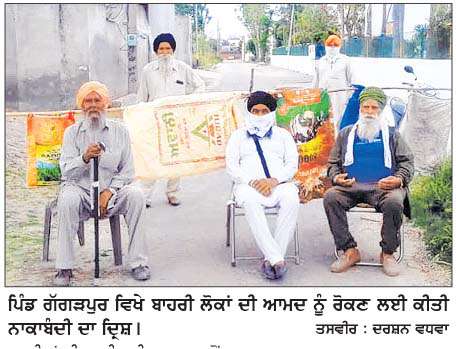 ਅਦਾਲੀ
ਪਿੰਡ ਗੱਗੜਪੁਰ ਵਿਖੇ ਬਾਹਰੀ ਲੋਕਾਂ ਦੀ ਆਮਦ ਨੂੰ ਰੋਕਣ ਲਈ ਕੀਤੀ
ਨਾਕਾਬੰਦੀ ਦਾ ਦ੍ਰਿਸ਼।
ਤਸਵੀਰ : ਦਰਸ਼ਨ ਵਧਵਾ